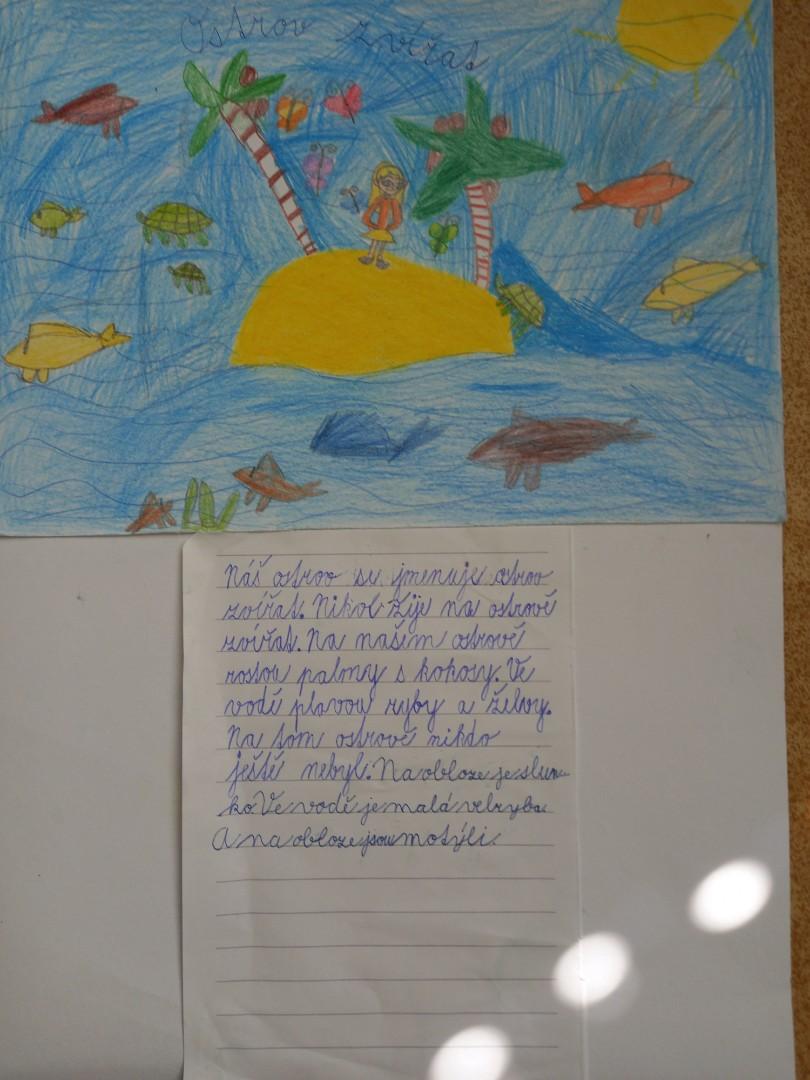 Ostrov zvířat
Náš ostrov se jmenuje ostrov
zvířat. Nikol žije na ostrově
zvířat. Na našem ostrově
rostou palmy s kokosy. Ve
vodě plavou ryby a želvy.
Na tom ostrově nikdo
ještě nebyl. Na obloze je slun
ko Ve vodě je malá velryba
A na obloze jsou motýli.